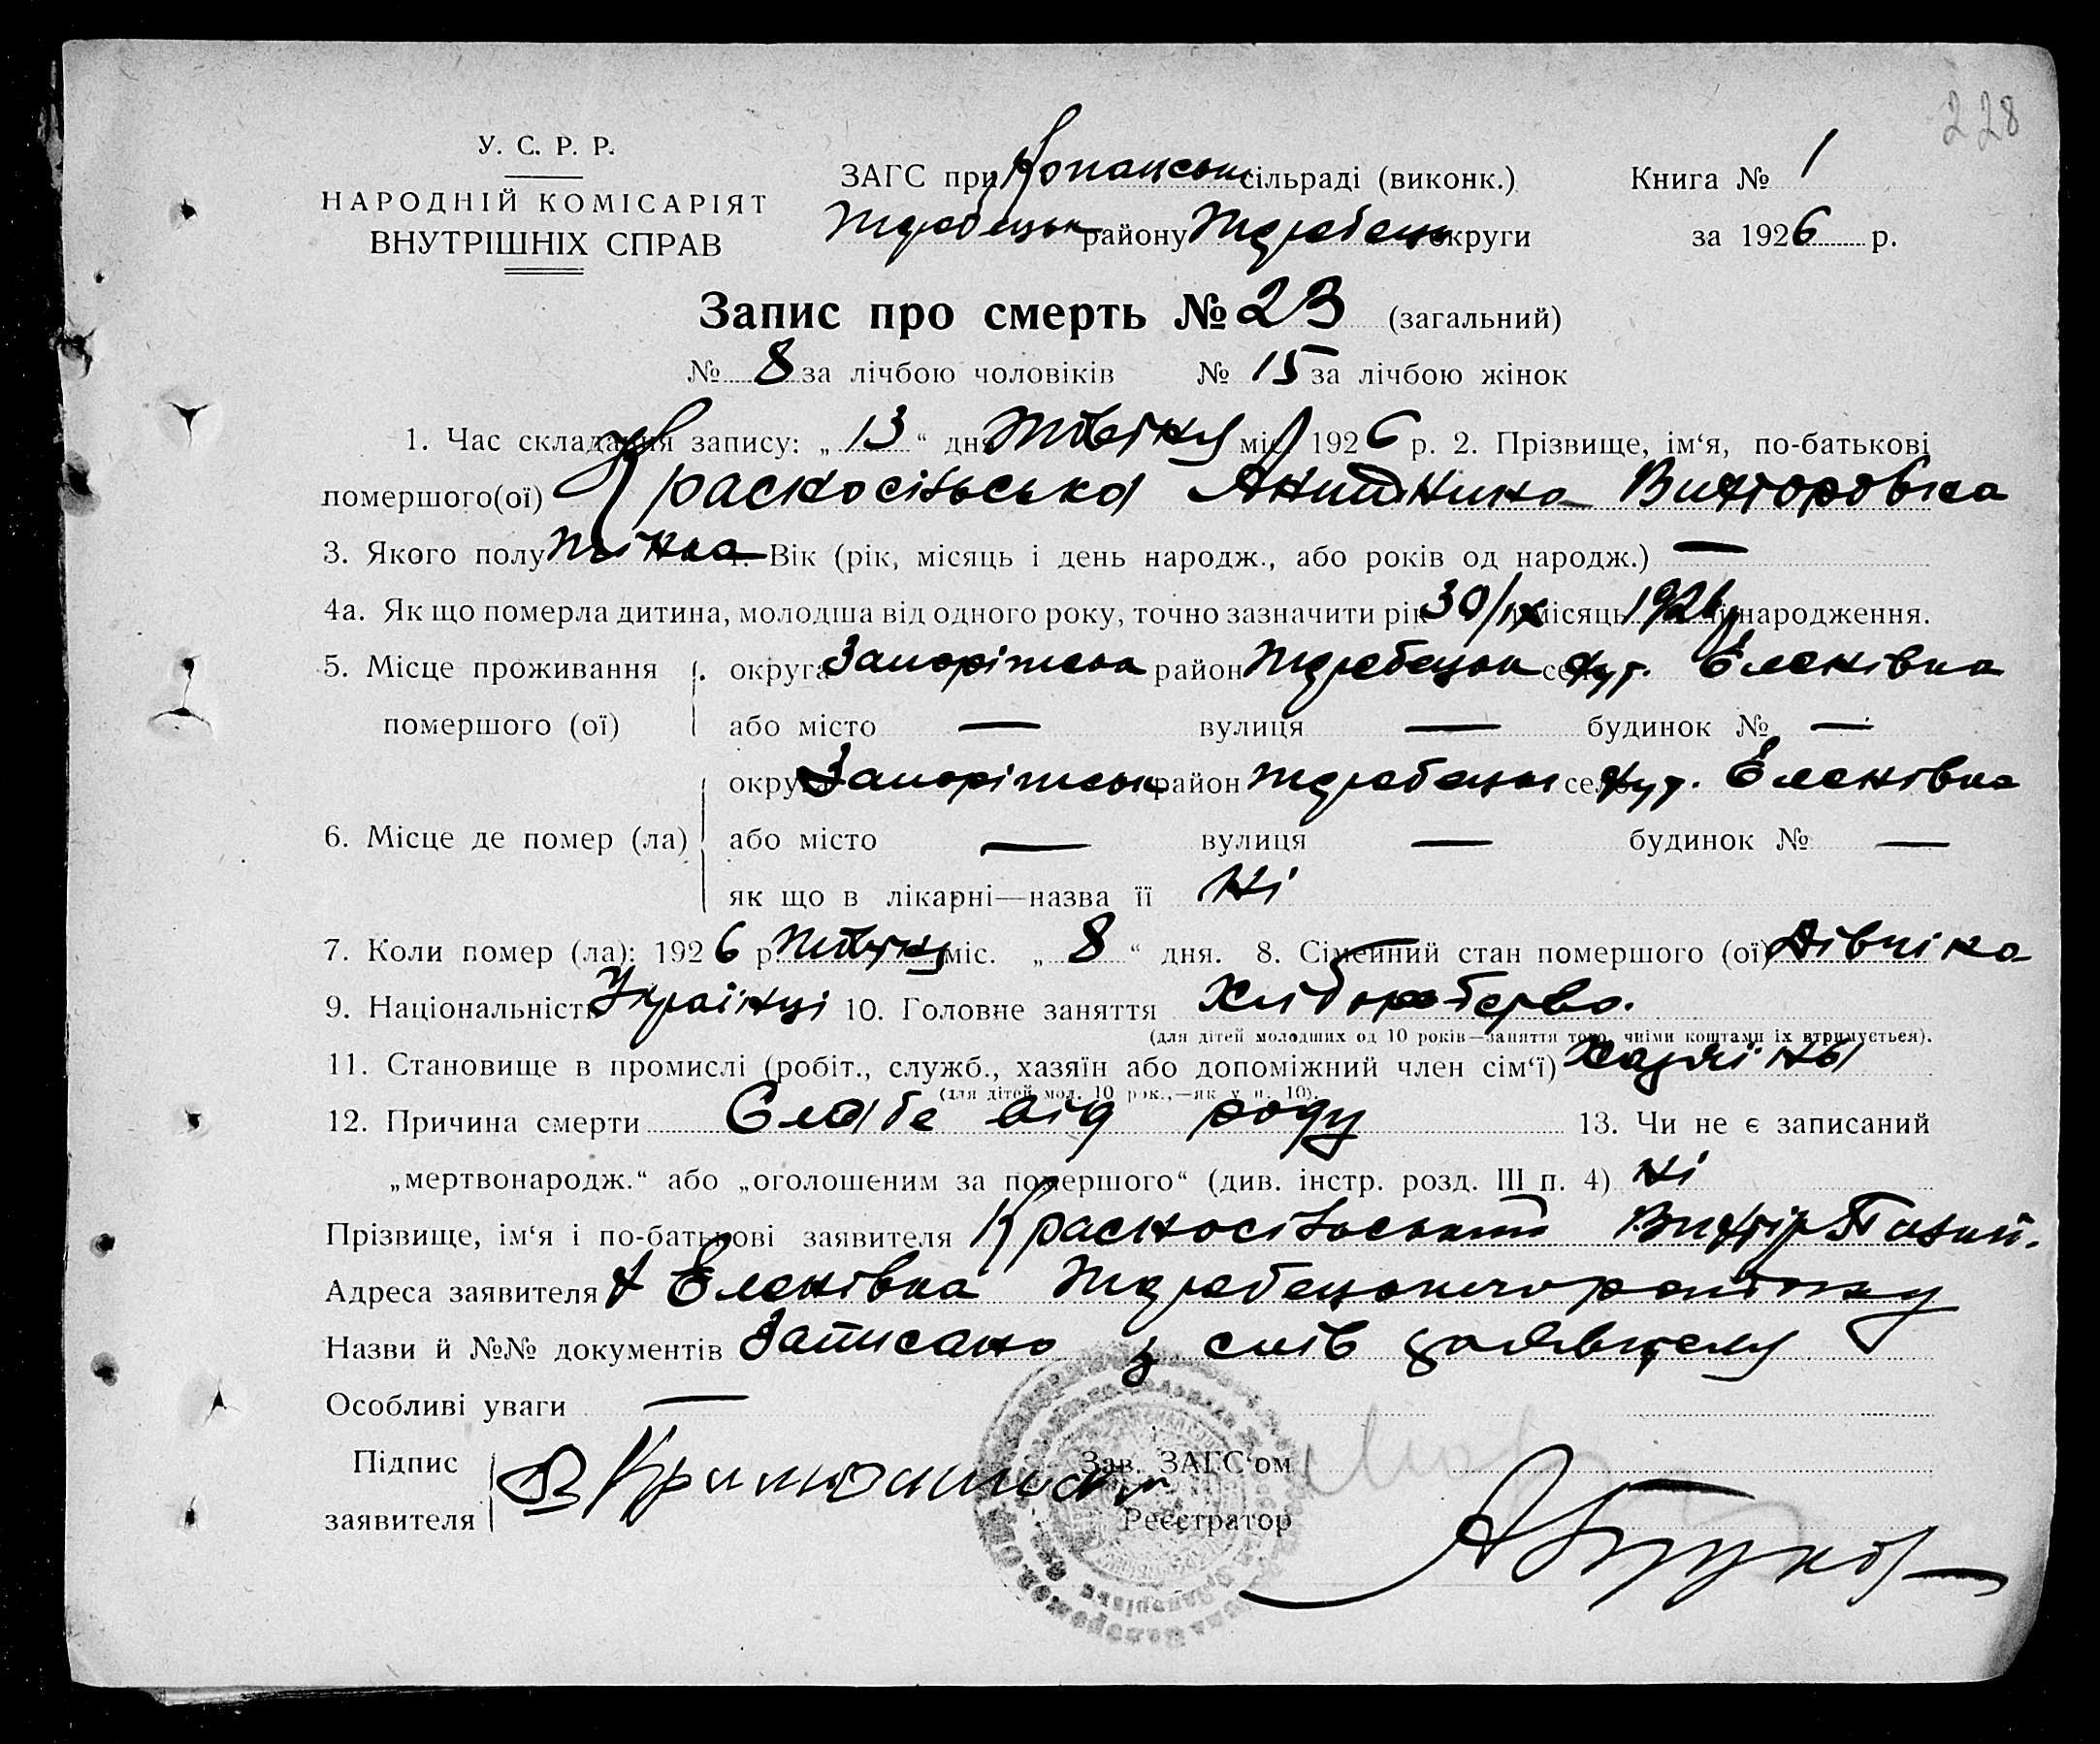 228
У. С. Р. Р.
НАРОДНІЙ КОМІСАРІЯТ
ВНУТРІШНІХ СПРАВ
ЗАГС при Копанськ сільраді (виконк.)
Жеребецьк району Жеребець округи
Книга № 1
за 1926 р.
Запис про смерть № 23 (загальний)
№ 8 за лічбою чоловіків № 15 за лічбою жінок
1. Час складання запису: „ 13 “ дня Жовтня міс. 1926 р. 2. Прізвище, ім‘я, по-батькові
помершого(ої) Красносільська Викторовна
3. Якого полу жінка 4. Вік (рік, місяць і день народж., або років од народж.) —
4а. Як що померла дитина, молодша від одного року, точно зазначити рік 30/IX місяць 1926 р народження.
5. Місце проживання округа Запоріжська район Жеребецьк село хут. Еленівка
помершого (ої) або місто — вулиця — будинок № —
округа Запоріжськ район Жеребецьк село хут. Еленівка
6. Місце де помер (ла) або місто — вулиця — будинок № —
як що в лікарні—назва її Ні
7. Коли помер (ла): 1926 р. Жовтня міс. „ 8 “ дня. 8. Сімейний стан помершого (ої) Дівчіна
9. Національність Українці 10. Головне заняття Хліборобство.
(для дітей молодших од 10 років—заняття того, чиїми коштами їх втримується).
11. Становище в промислі (робіт., служб., хазяїн або допоміжний член сім‘ї) Хазяїни
(для дітей мол. 10 рок.,—як у п. 10).
12. Причина смерти Слабе від роду 13. Чи не є записаний
„мертвонародж.“ або „оголошеним за помершого“ (див. інстр. розд. III п. 4) Ні
Прізвище, ім‘я і по-батькові заявителя Красносільський Виктір
Адреса заявителя х Еленівка Жеребецького району
Назви й №№ документів Записано з слів заявителя
Особливі уваги —
Підпис
заявителя
Зав. ЗАГС‘ом
Реєстратор